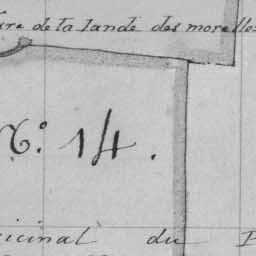 de la lande des morelle
N.º 14.
icinal du